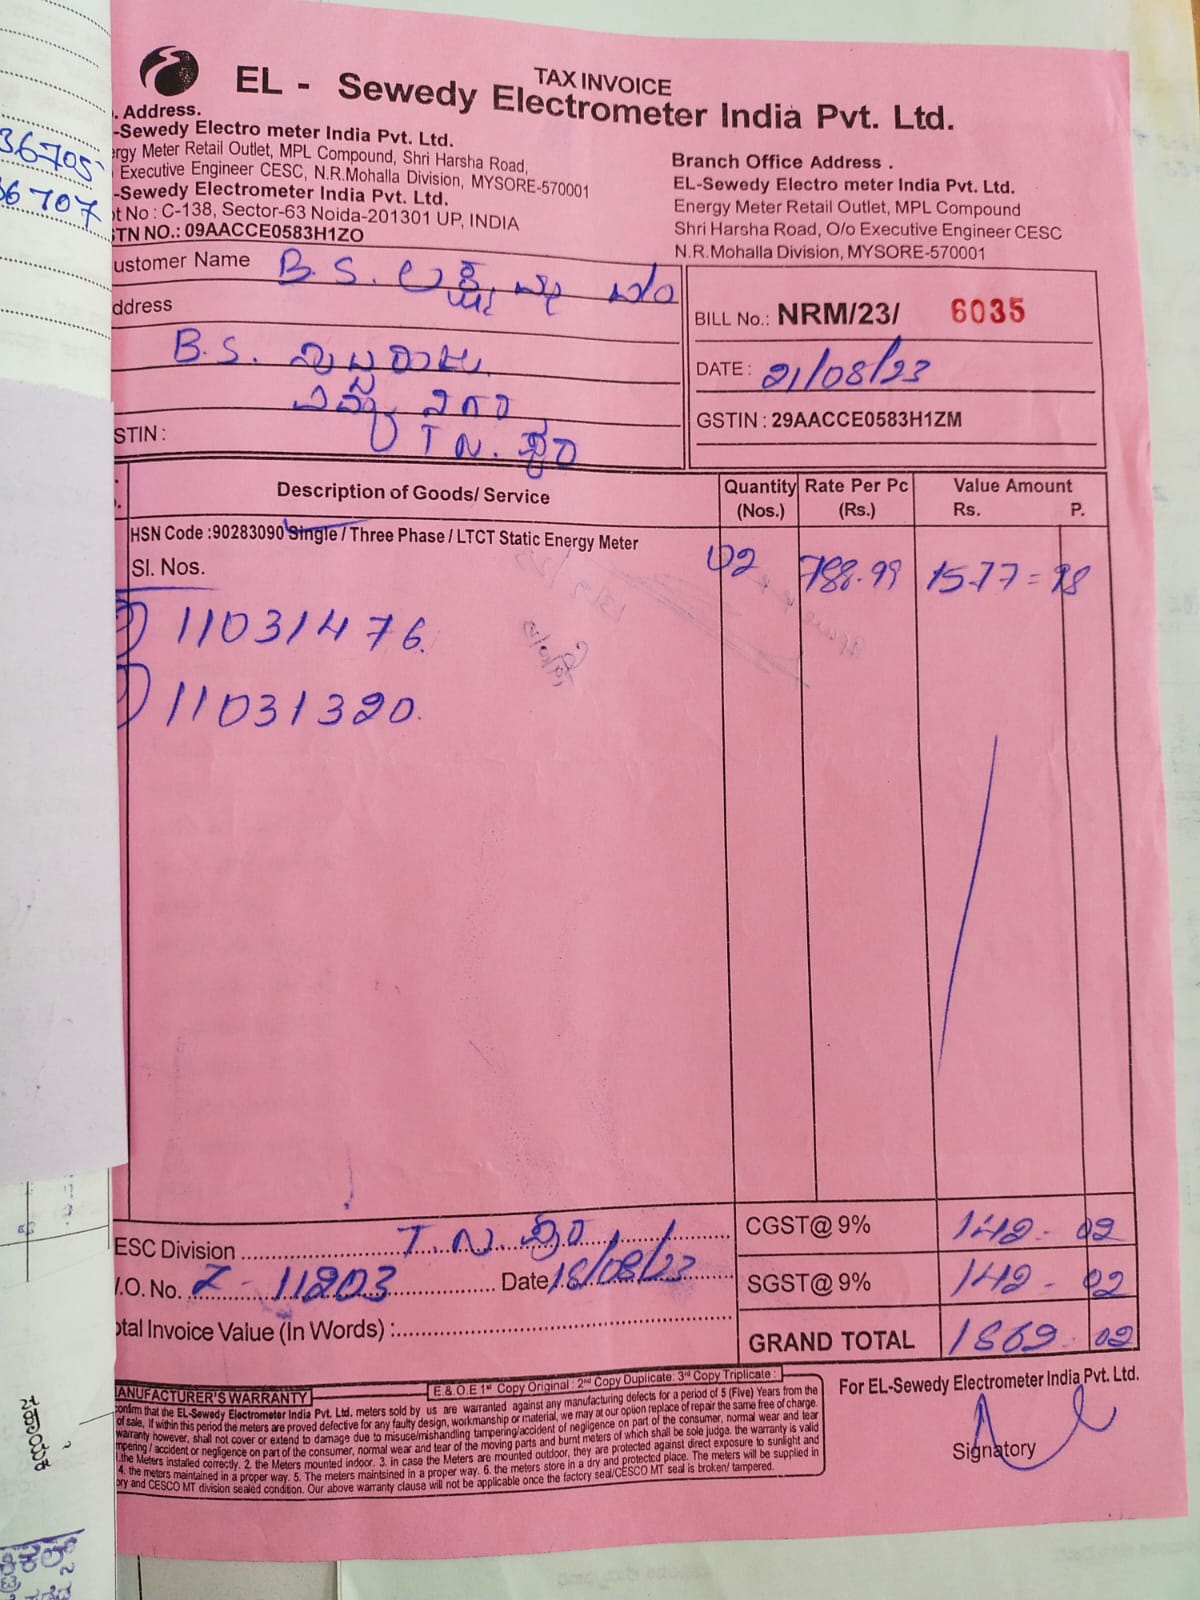 36705
36707
TAX INVOICE
EL - Sewedy Electrometer India Pvt. Ltd.
. Address.
-Sewedy Electro meter India Pvt. Ltd.
rgy Meter Retail Outlet, MPL Compound, Shri Harsha Road,
Executive Engineer CESC, N.R.Mohalla Division, MYSORE-570001
-Sewedy Electrometer India Pvt. Ltd.
t No : C-138, Sector-63 Noida-201301 UP, INDIA
TN NO.: 09AACCE0583H1ZO
Branch Office Address .
EL-Sewedy Electro meter India Pvt. Ltd.
Energy Meter Retail Outlet, MPL Compound
Shri Harsha Road, O/o Executive Engineer CESC
N.R.Mohalla Division, MYSORE-570001
ustomer Name B. S.
ddress
B.S.
STIN :
BILL No.: NRM/23/ 6035
DATE : 21/08/23
GSTIN : 29AACCE0583H1ZM
Description of Goods/ Service Quantity (Nos.) Rate Per Pc (Rs.) Value Amount Rs. P.
HSN Code :90283090 Single / Three Phase / LTCT Static Energy Meter 02 788.99 1577=98
Sl. Nos.
11031476.
11031320.
CGST@ 9% 142 - 02
ESC Division T. ನ. ಪುರ
SGST@ 9% 142 - 02
.O. No. Z - 11203 Date 18/08/23
otal Invoice Value (In Words) :
GRAND TOTAL 1862 - 02
E.& O.E 1st Copy Original : 2nd Copy Duplicate: 3rd Copy Triplicate :
ANUFACTURER'S WARRANTY
confirm that the EL-Sewedy Electrometer India Pvt. Ltd. meters sold by us are warranted against any manufacturing defects for a period of 5 (Five) Years from the
of sale, If within this period the meters are proved defective for any faulty design, workmanship or material, we may at our option replace of repair the same free of charge.
warranty however, shall not cover or extend to damage due to misuse/mishandling tampering/accident of negligence on part of the consumer, normal wear and tear
mpering / accident or negligence on part of the consumer, normal wear and tear of the moving parts and burnt meters of which shall be sole judga. the warranty is valid
.the Meters installed correctly. 2. the Meters mounted indoor. 3. in case the Meters are mounted outdoor, they are protected against direct exposure to sunlight and
4. the meters maintained in a proper way. 5. The meters maintsined in a proper way. 6. the meters store in a dry and protected place. The meters will be supplied in
ory and CESCO MT division sealed condition. Our above warranty clause will not be applicable once the factory seal/CESCO MT seal is broken/ tampered.
For EL-Sewedy Electrometer India Pvt. Ltd.
Signatory